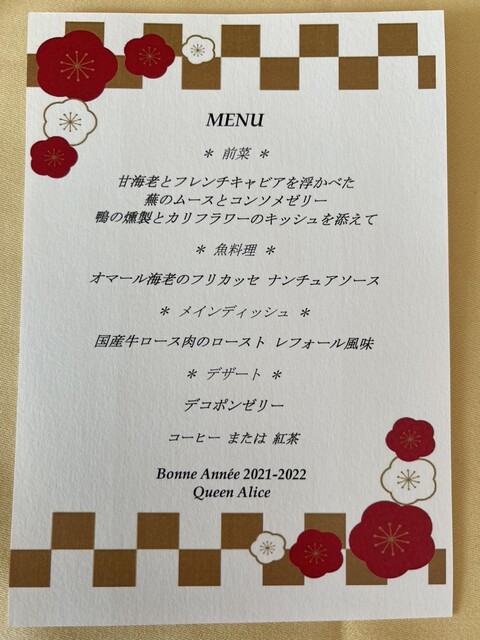 MENU
＊ 前菜 ＊
甘海老とフレンチキャビアを浮かべた
蕪のムースとコンソメゼリー
鴨の燻製とカリフラワーのキッシュを添えて
＊ 魚料理 ＊
オマール海老のフリカッセ ナンチュアソース
＊ メインディッシュ ＊
国産牛ロース肉のロースト レフォール風味
＊ デザート ＊
デコポンゼリー
コーヒー または 紅茶
Bonne Année 2021-2022
Queen Alice